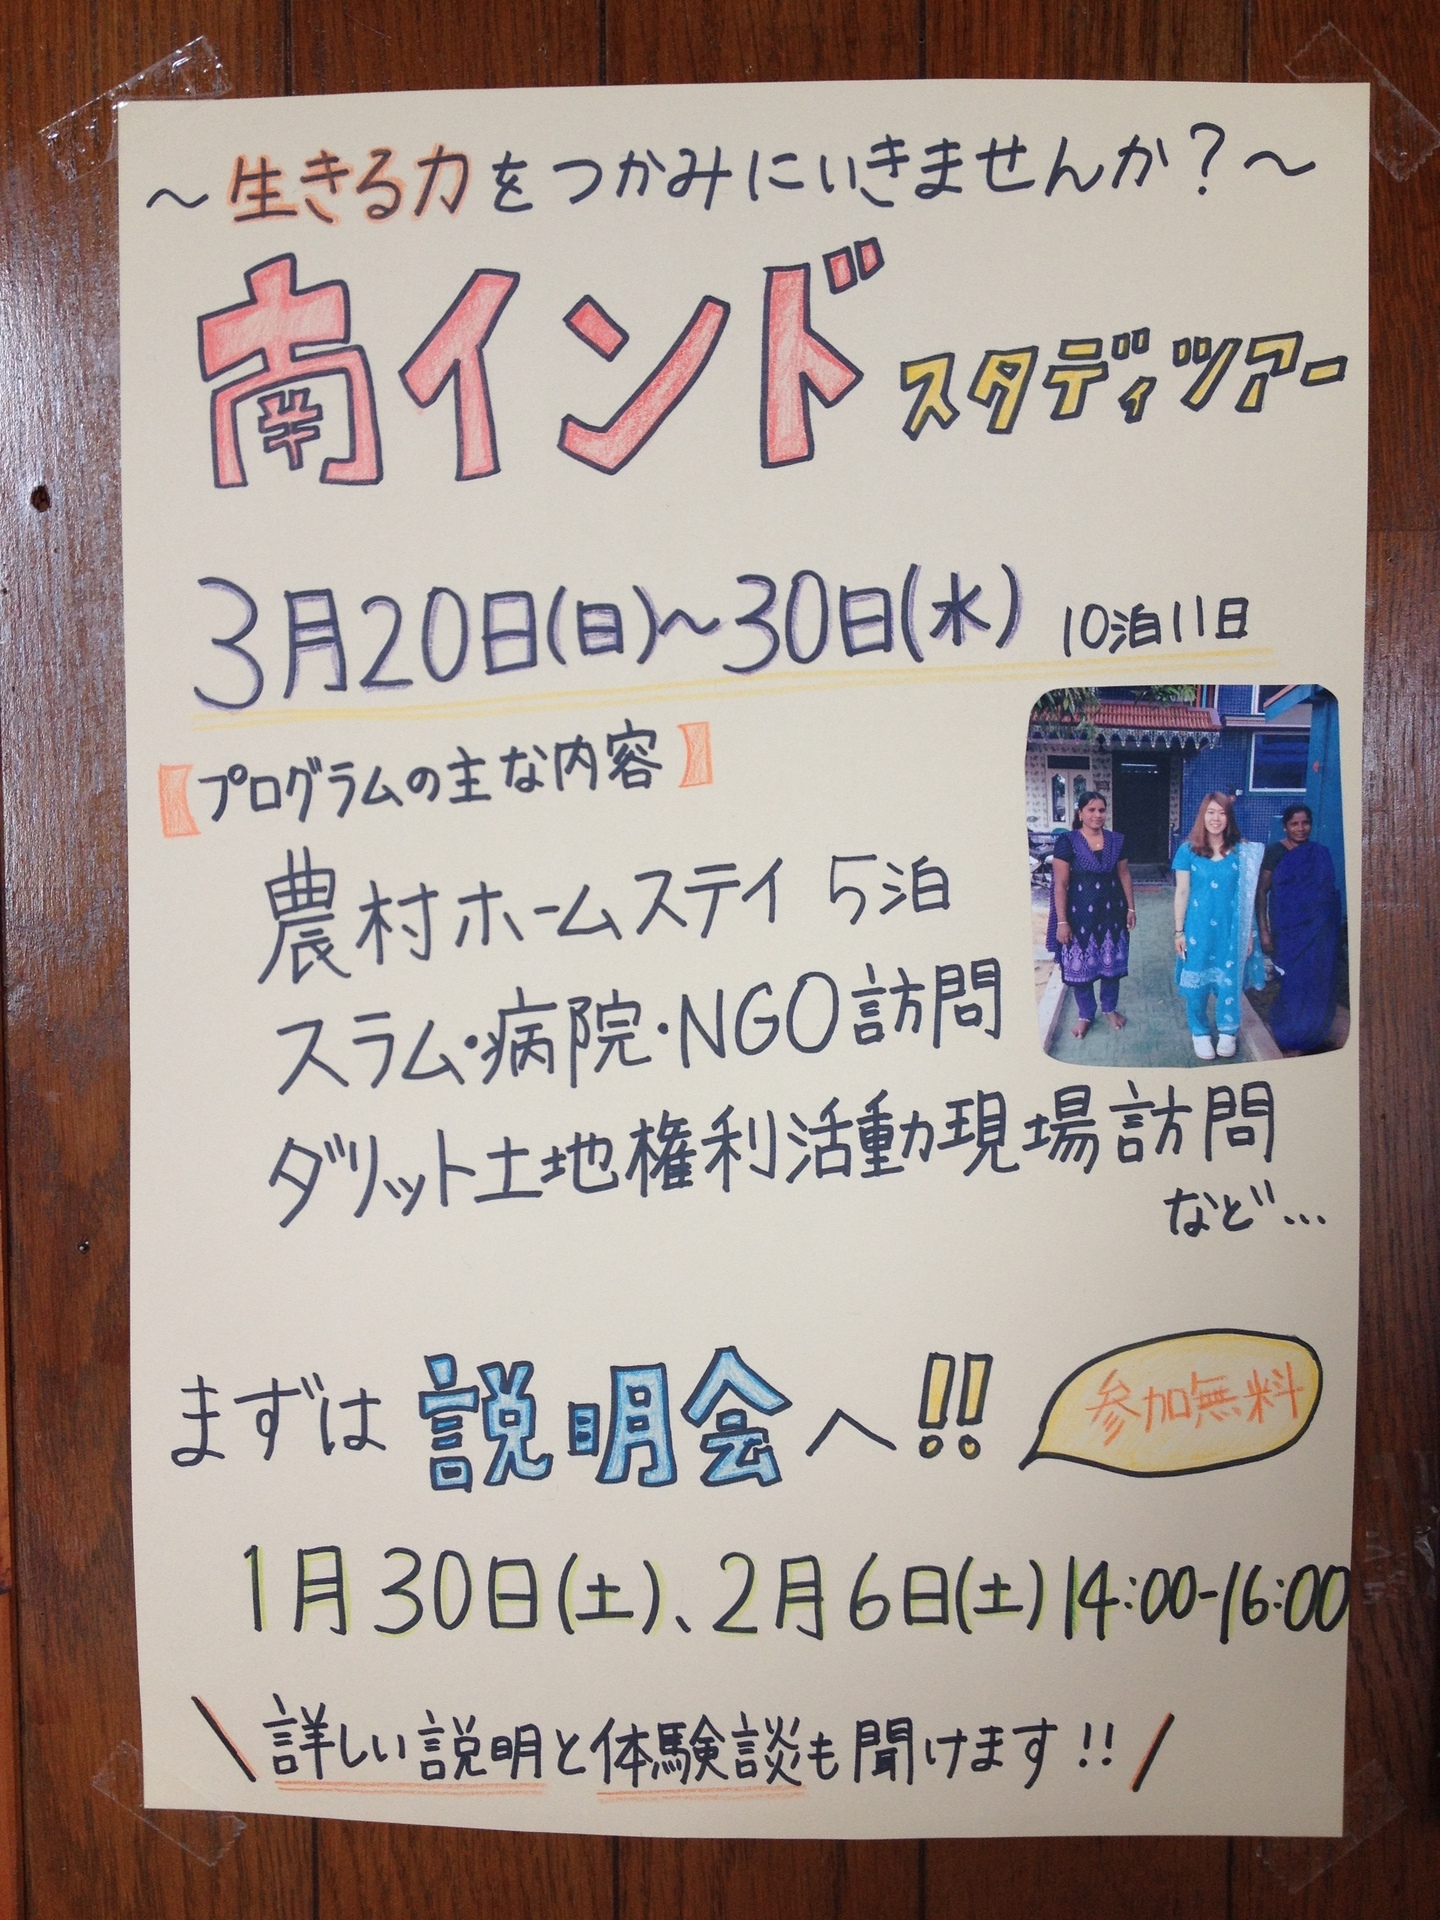 ～生きる力をつかみにいきませんか？～
南インド スタディツアー
3月20日(日)～30日(水) 10泊11日
【プログラムの主な内容】
農村ホームステイ 5泊
スラム・病院・NGO訪問
ダリット土地権利活動現場訪問
など…
まずは 説明会へ!! 参加無料
1月30日(土)、2月6日(土)14:00-16:00
＼詳しい説明と体験談も聞けます!!／